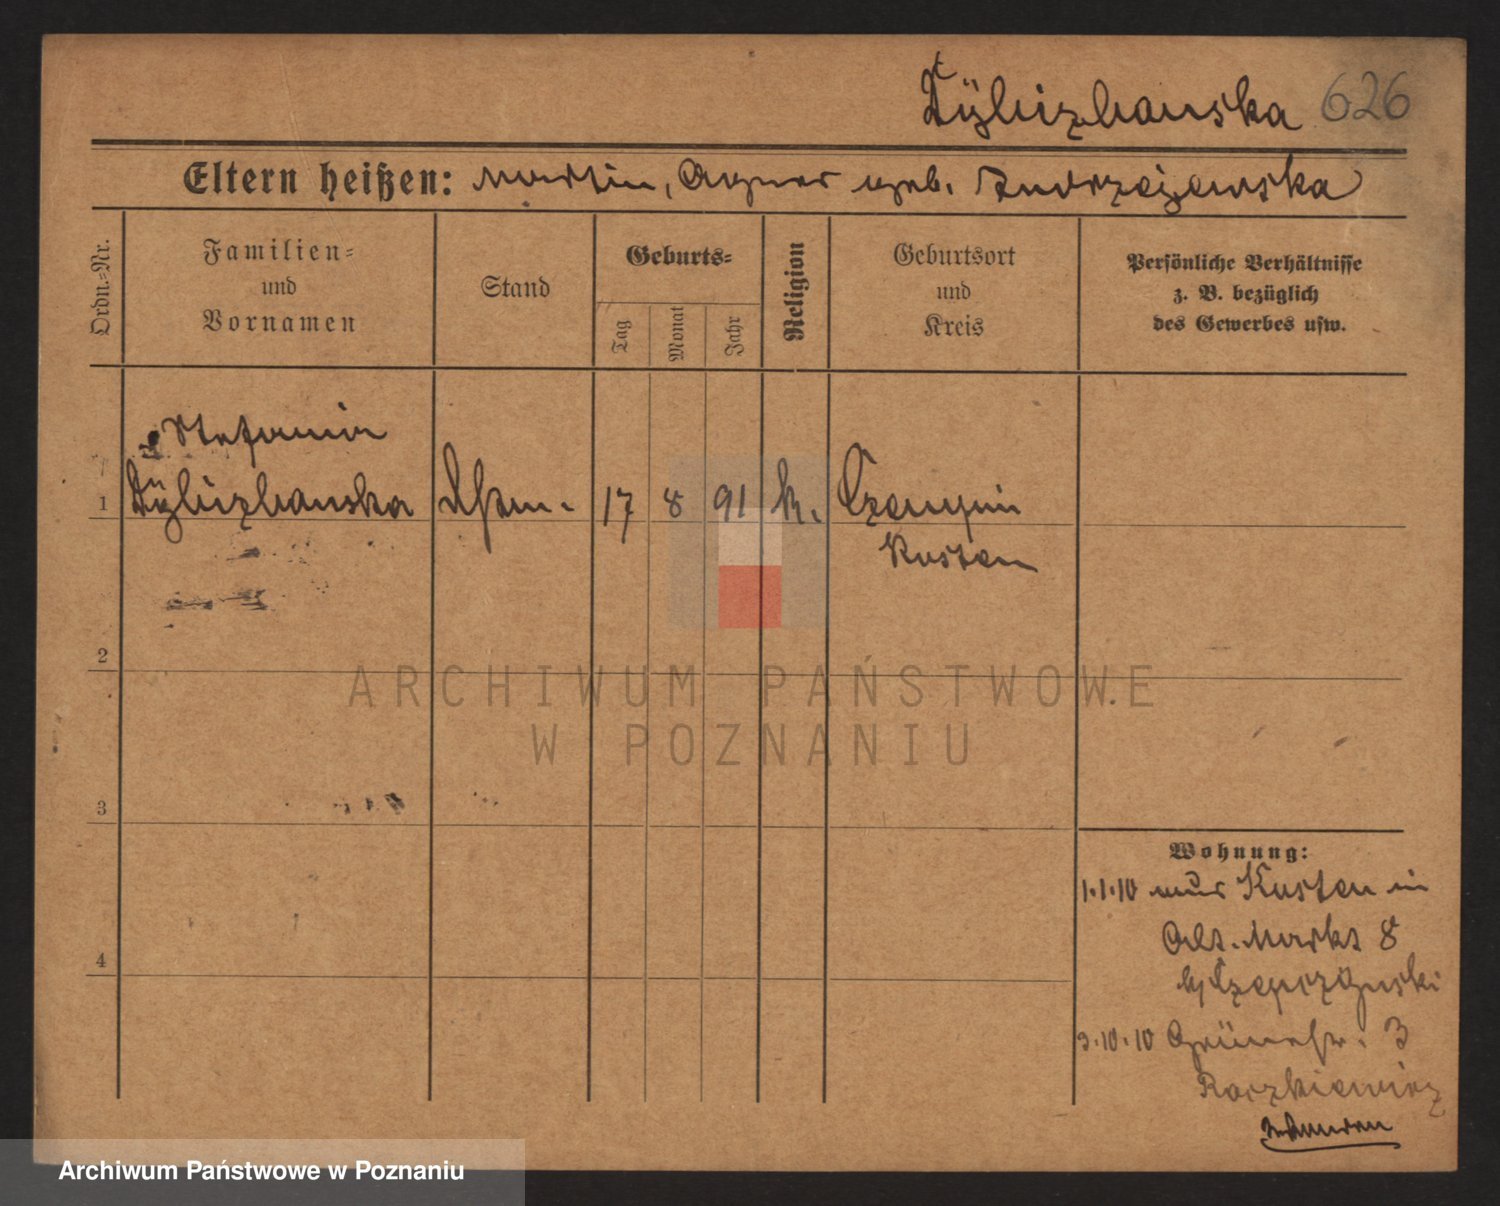 626
Eltern heißen: Martin, Agnes geb. Andrzejewska
Ordn.-Nr.
Familien-
und
Vornamen
Stand
Geburts-
Tag
Monat
Jahr
Religion
Geburtsort
und
Kreis
Persönliche Verhältnisse
z. B. bezüglich
des Gewerbes usw.
Stefania
1 17 8 91 k. Czempin
Kosten
2
3
4
Wohnung:
1.1.10 aus Kosten in
Alt. Markt 8
3.10.10 Grünestr. 3
Raczkiewicz
ARCHIWUM PAŃSTWOWE
W POZNANIU
Archiwum Państwowe w Poznaniu